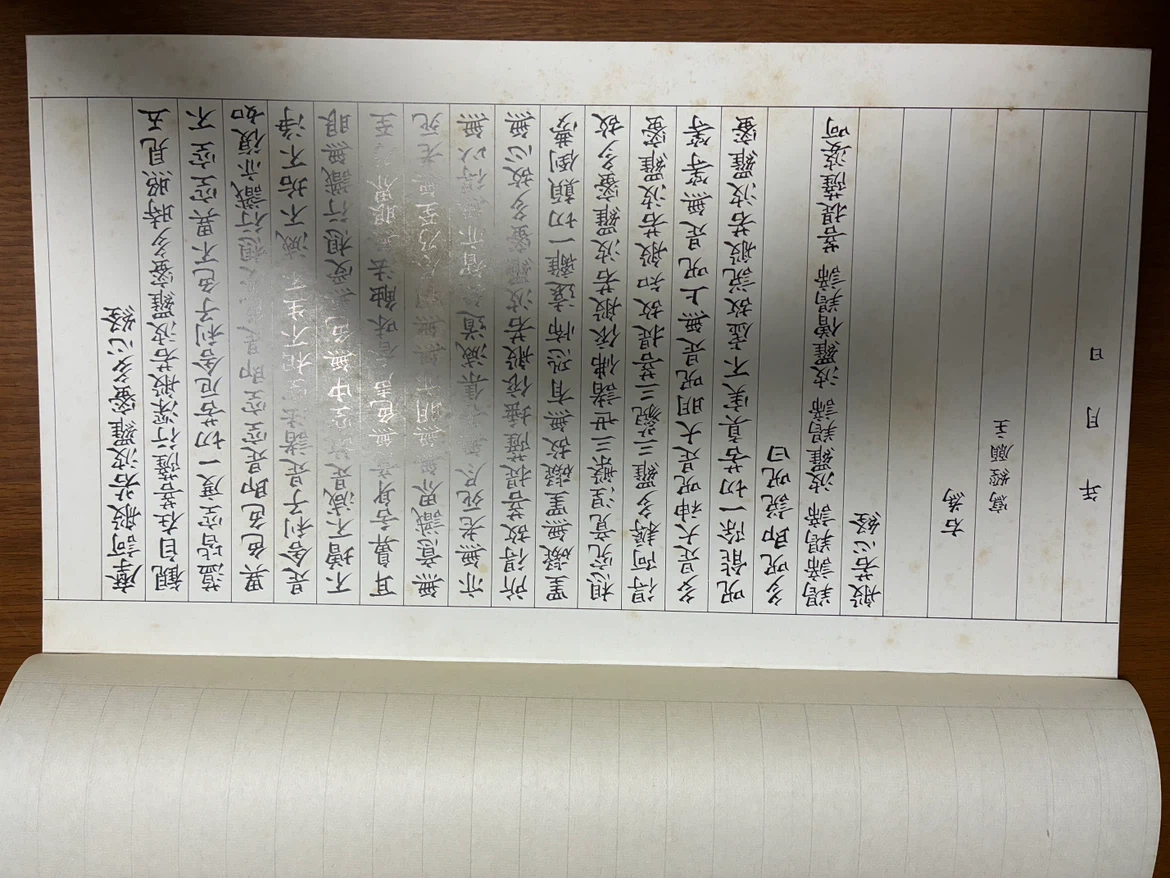 摩訶般若波羅蜜多心經
觀自在菩薩行深般若波羅蜜多時照見五
蘊皆空度一切苦厄舍利子色不異空空不
異色色即是空空即是色受想行識亦復如
是舍利子是諸法空相不生不滅不垢不淨
不增不減是故空中無色無受想行識無眼
耳鼻舌身意無色聲香味觸法無眼界乃至
無意識界無無明亦無無明盡乃至無老死
亦無老死盡無苦集滅道無智亦無得以無
所得故菩提薩埵依般若波羅蜜多故心無
罣礙無罣礙故無有恐怖遠離一切顛倒夢
想究竟涅槃三世諸佛依般若波羅蜜多故
得阿耨多羅三藐三菩提故知般若波羅蜜
多是大神呪是大明呪是無上呪是無等等
呪能除一切苦真実不虛故說般若波羅蜜
多呪即說呪曰
羯諦羯諦 波羅羯諦 波羅僧羯諦 菩提薩婆訶
般若心經
右為
寫經願主
年 月 日